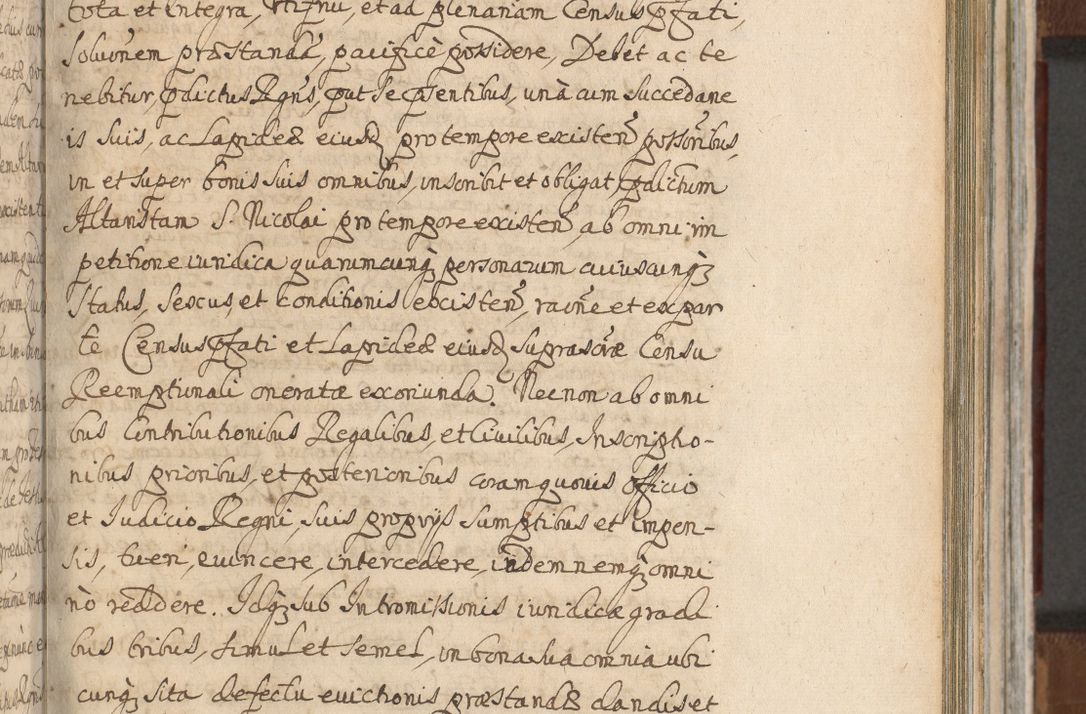 tota et integra, et ad plenariam Census pfati,
Soluonem præstand, pacifice possidere, Debet ac te
nebitur, pdictus Rgns, put se psentibus, unà cum succedane
is suis, ac Lapideæ eiusd pro tempore existen possoribus,
in et super bonis suis omnibus, inscribit et obligat, pdictum
Altaristam S. Nicolai pro tempore existen, ab omni im
petitione iuridica quarumcunq personarum cuiuscunq
status, sexus, et conditionis existen, raōne et ex par
te Census pfati et Lapideæ eiusd suprascrae Censu
Reemptionali oneratæ exoriunda. Necnon ab omni
bus Contributionibus Regalibus, et Civilibus, Inscriptio-
nibus prioribus, et posterioribus coram quovis officio
et Iudicio Regni, suis proprijs sumptibus et impen-
sis, tueri, evincere, intercedere, indemnemq omni
nò reddere. Idq sub Intromissionis iuridicæ gradi
bus tribus, simul et semel, in bona sua omnia ubi
cunq sita defectu evictionis præstandæ dandis et